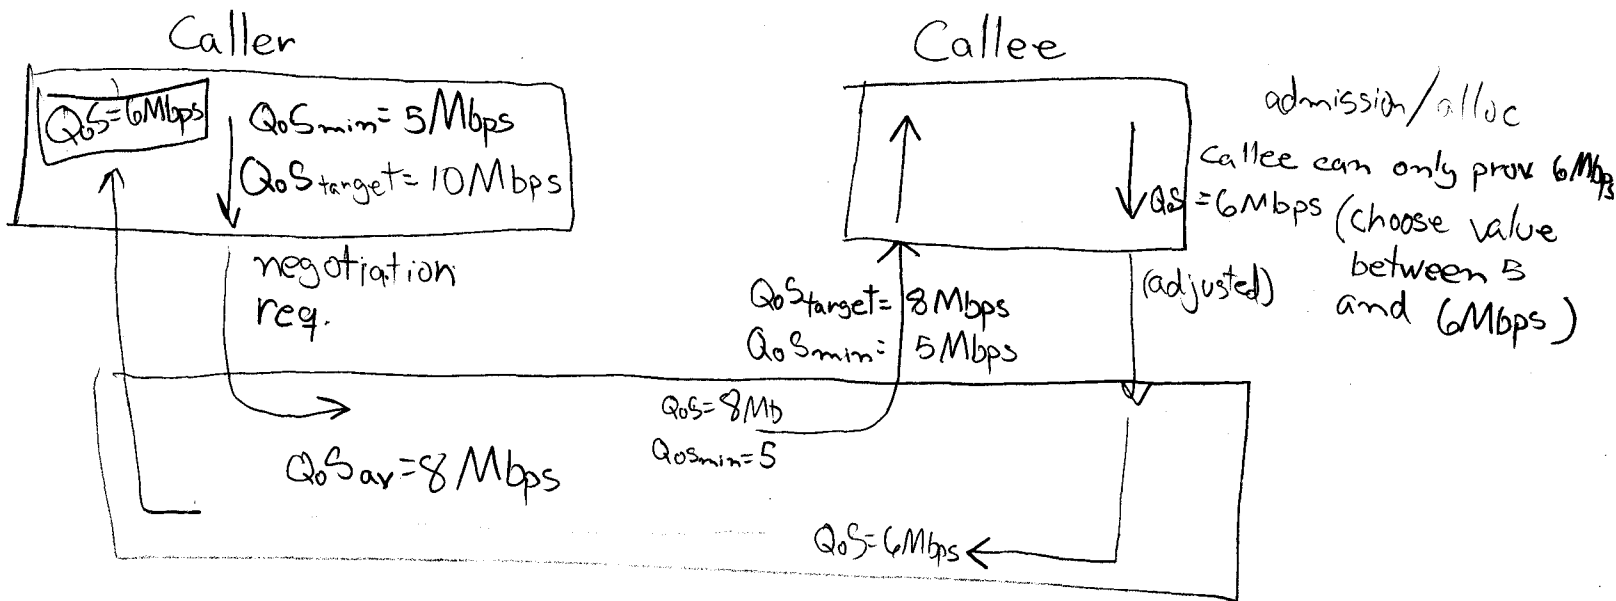 Caller
Callee
QoS=6Mbps
QoSmin=5Mbps
QoStarget=10Mbps
negotiation
req.
admission/alloc
callee can only prov 6Mbps
QoS=6Mbps (choose value
between 5
and 6Mbps)
(adjusted)
QoStarget=8Mbps
QoSmin=5Mbps
QoS=8Mb
QoSmin=5
QoSav=8Mbps
QoS=6Mbps